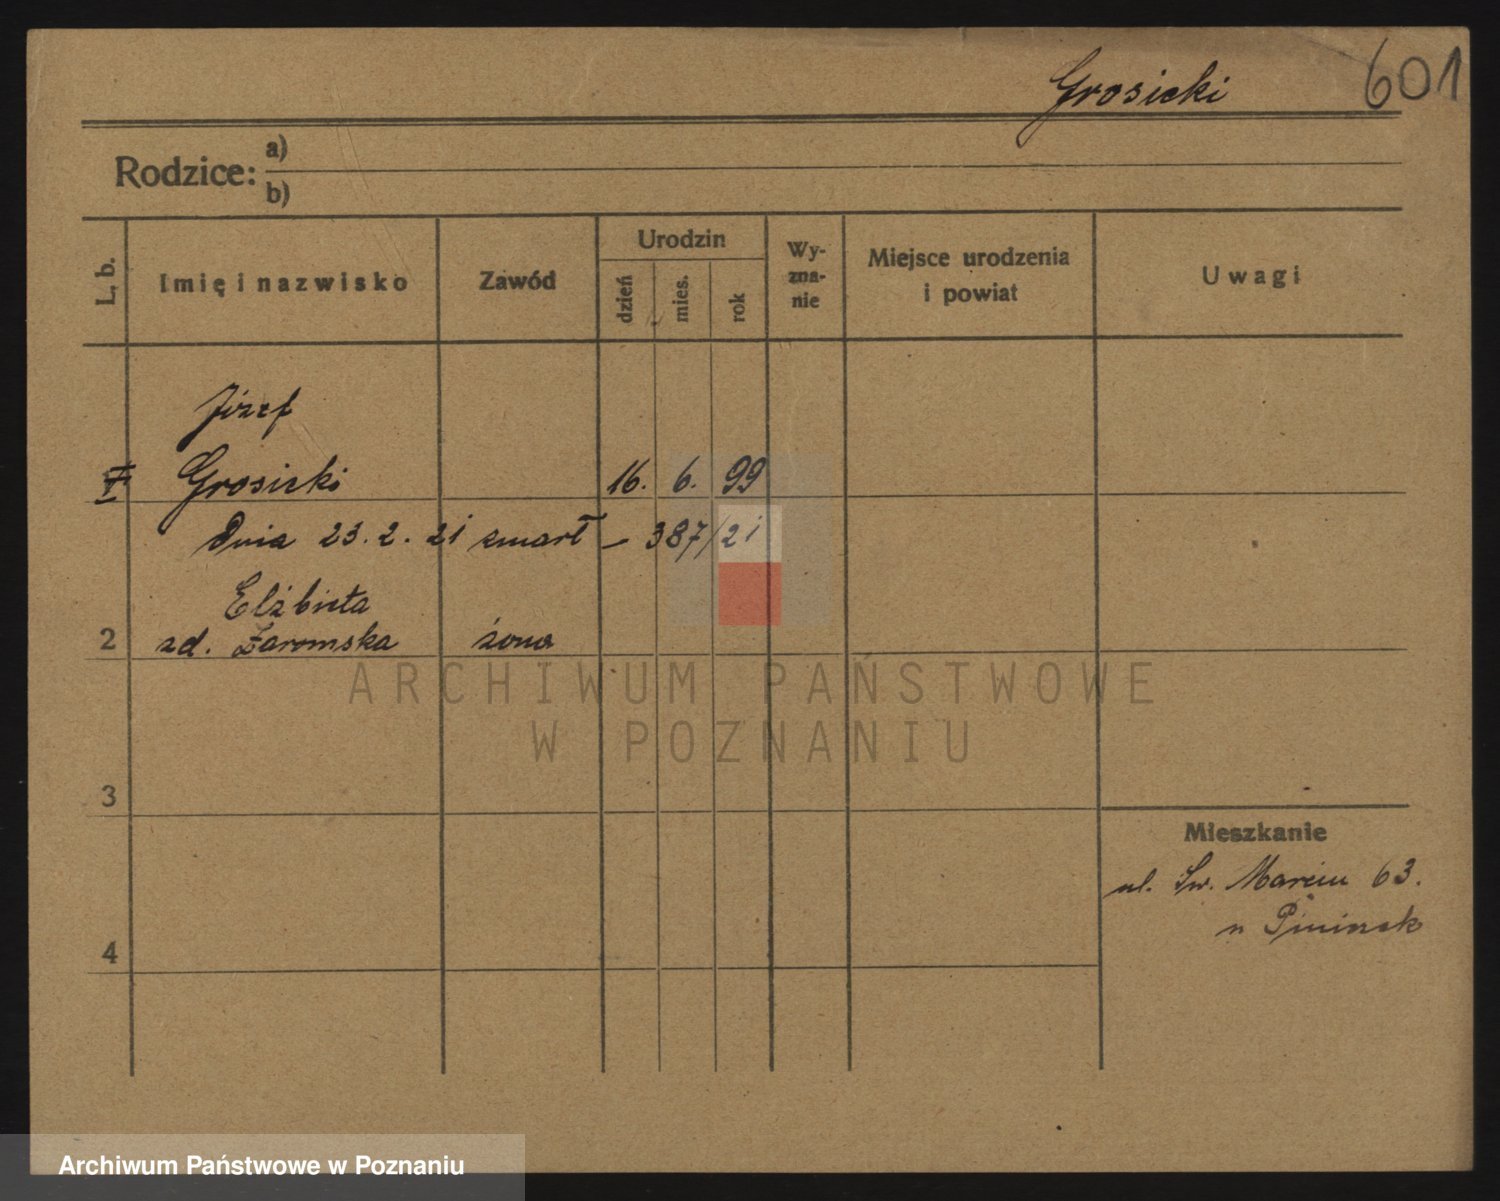 Grosicki
601
Rodzice: a)
b)
L. b.
Imię i nazwisko
Zawód
Urodzin
dzień
mies.
rok
Wy-
zna-
nie
Miejsce urodzenia
i powiat
Uwagi
Józef
Grosicki 16. 6. 99
Dnia 23. 2. 21 zmarł – 387/21
Elżbieta
2 zd. Żaromska żona
ARCHIWUM PAŃSTWOWE
W POZNANIU
3
Mieszkanie
ul. Św. Marcin 63.
4
Archiwum Państwowe w Poznaniu